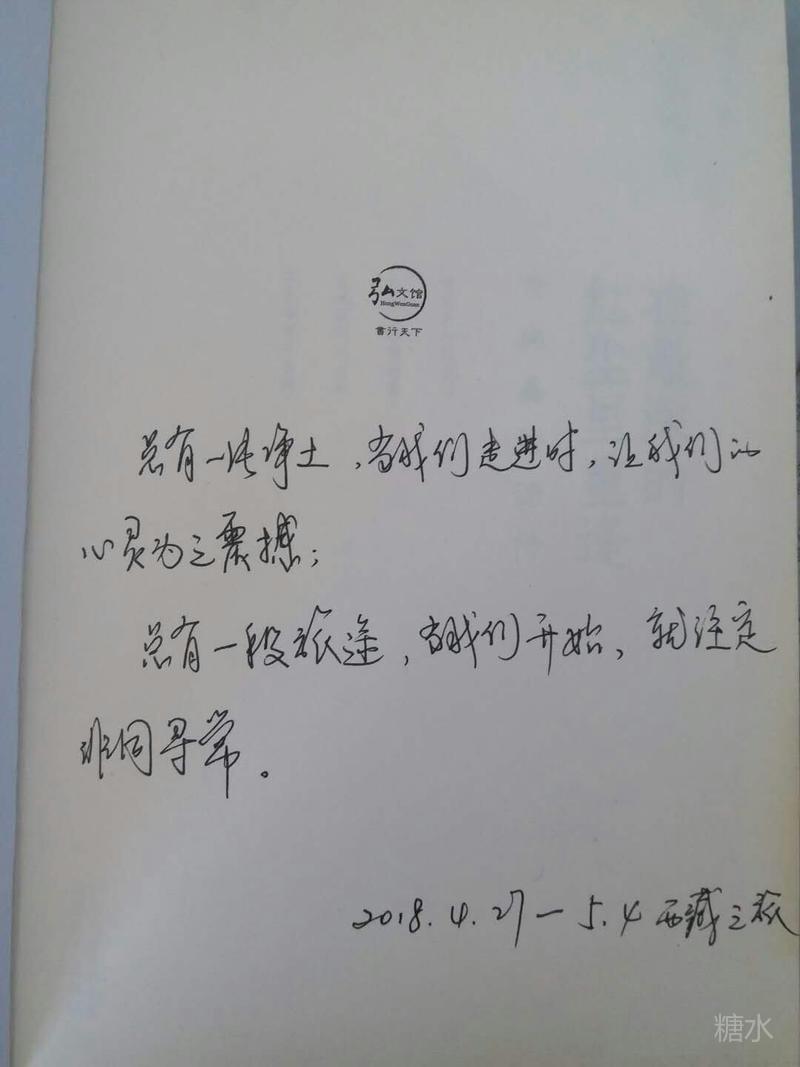 弘文馆
HongWenGuan
書行天下
总有一块净土,当我们走进时,让我们的
心灵为之震撼;
总有一段旅途,当我们开始,就注定
非同寻常。
2018.4.27—5.4 西藏之旅
糖水